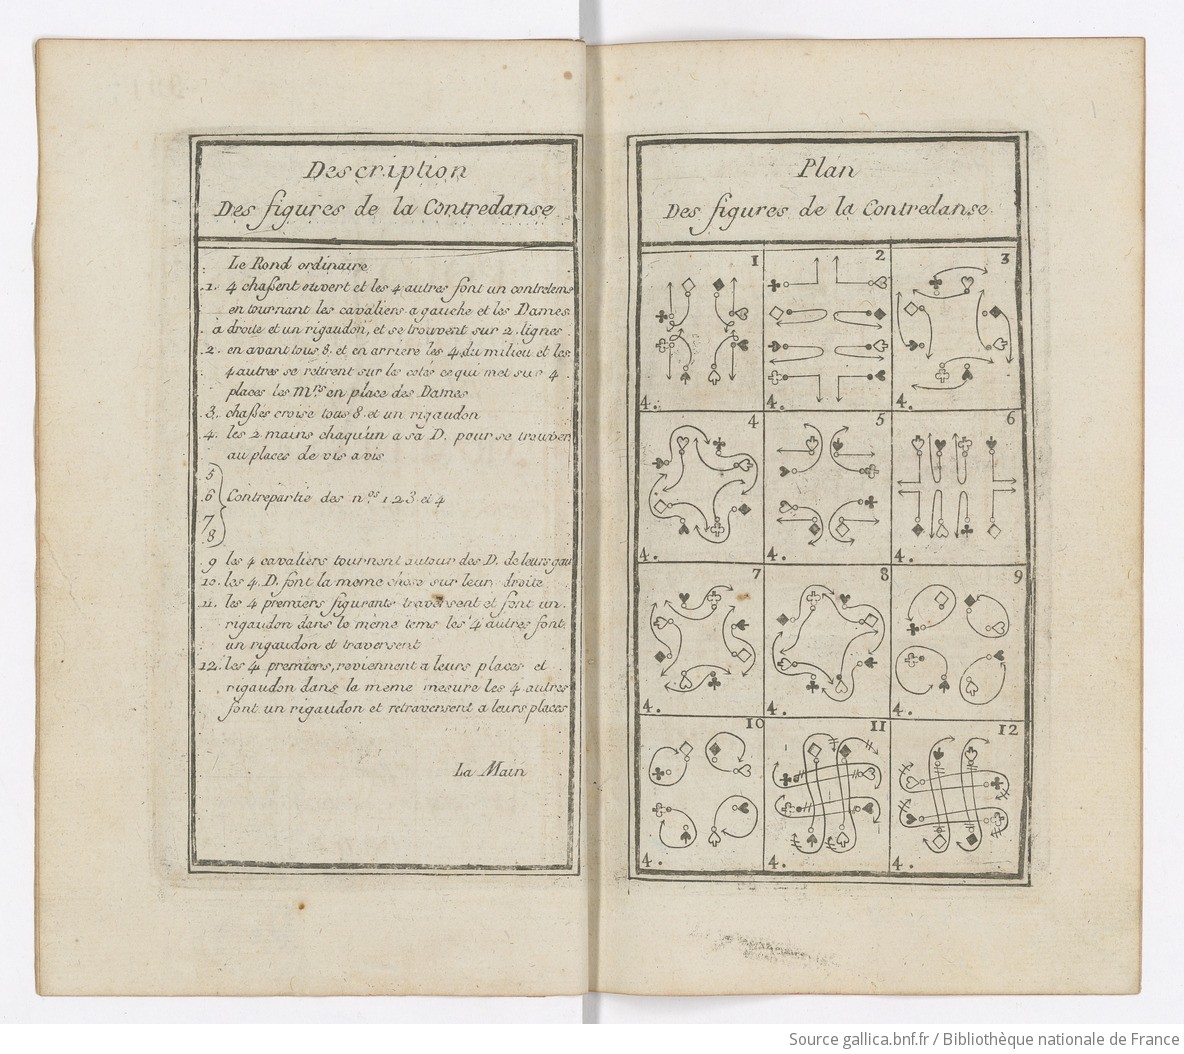 Description
Des figures de la Contredanse
Le Rond ordinaire
1. 4 chaßent ouvert et les 4 autres font un contretems
en tournant les cavaliers a gauche et les Dames
à droite et un rigaudon, et se trouvent sur 2. lignes
2. en avant tous 8. et en arriere les 4 du milieu et les
4 autres se retirent sur les cotes ce qui met sur 4
places les M.rs en place des Dames
3. chaßes croisé tous 8. et un rigaudon
4. les 2 mains chaqu'un a sa D. pour se trouver
au places de vis a vis
5
.6 Contrepartie des n.os 1.2.3. et 4
7
8
9 les 4 cavaliers tournent autour des D. de leurs gau
10. les 4. D. font la meme chose sur leur droite
11. les 4 premiers figurants traversent et font un
rigaudon dans le même tems les 4 autres font
un rigaudon et traversent
12. les 4 premiers, reviennent a leurs places et
rigaudon dans la meme mesure les 4 autres
font un rigaudon et retraversent a leurs places
La Main
Plan
Des figures de la Contredanse.
1 2 3
4. 4. 4.
4 5 6
4. 4. 4.
7 8 9
4. 4. 4.
10 11 12
4. 4. 4.
Source gallica.bnf.fr / Bibliothèque nationale de France